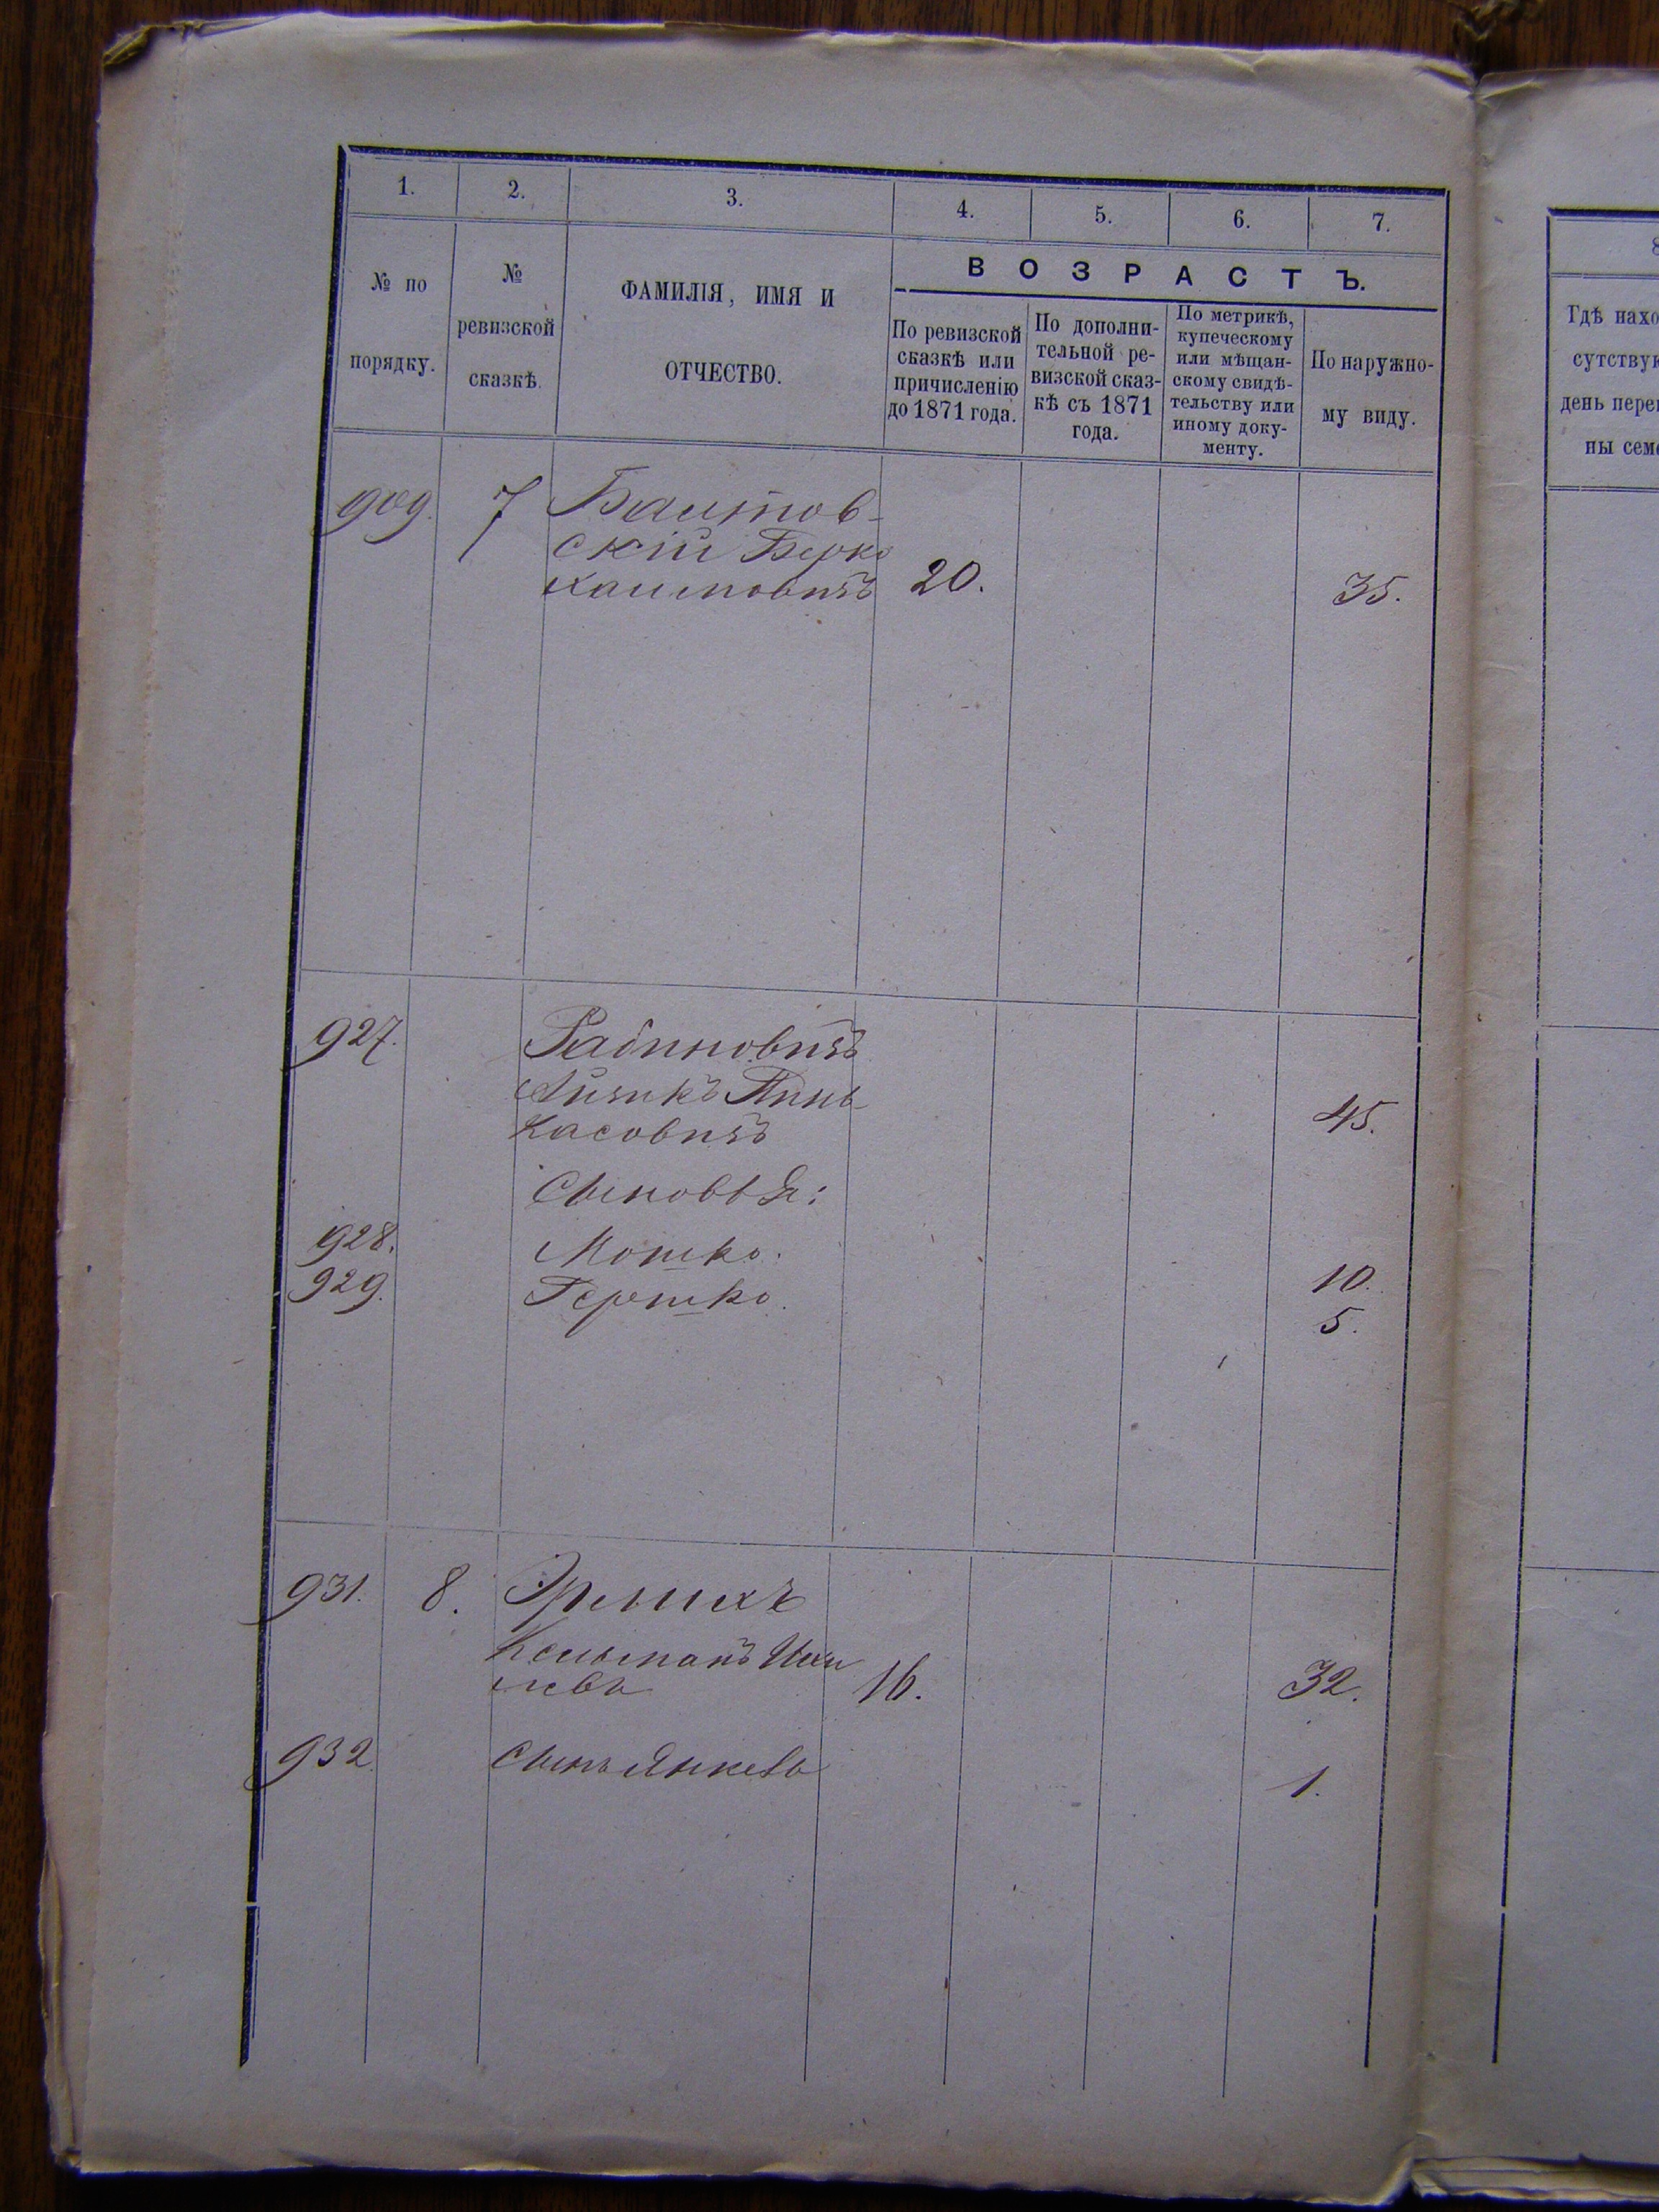 1. 2. 3. 4. 5. 6. 7.
№ по порядку.
№ ревизской сказкѣ.
ФАМИЛІЯ, ИМЯ И ОТЧЕСТВО.
ВОЗРАСТЪ.
По ревизской
сказкѣ или
причисленію
до 1871 года.
По дополни-
тельной ре-
визской сказ-
кѣ съ 1871
года.
По метрикѣ,
купеческому
или мѣщан-
скому свидѣ-
тельству или
иному доку-
менту.
По наружно-
му виду.
909. 7
скій Берко
Хаимовичъ 20. 35.
927. Рабиновичъ
Айзикъ Пинь-
касовичъ 45.
Сыновья:
928. Мошко. 10.
929. Гершко. 5.
931. 8. Эрлихъ
Кельманъ
16. 32.
932 Сынъ Янкель 1.
8
Гдѣ нахо
сутствую
день пере
ны сем